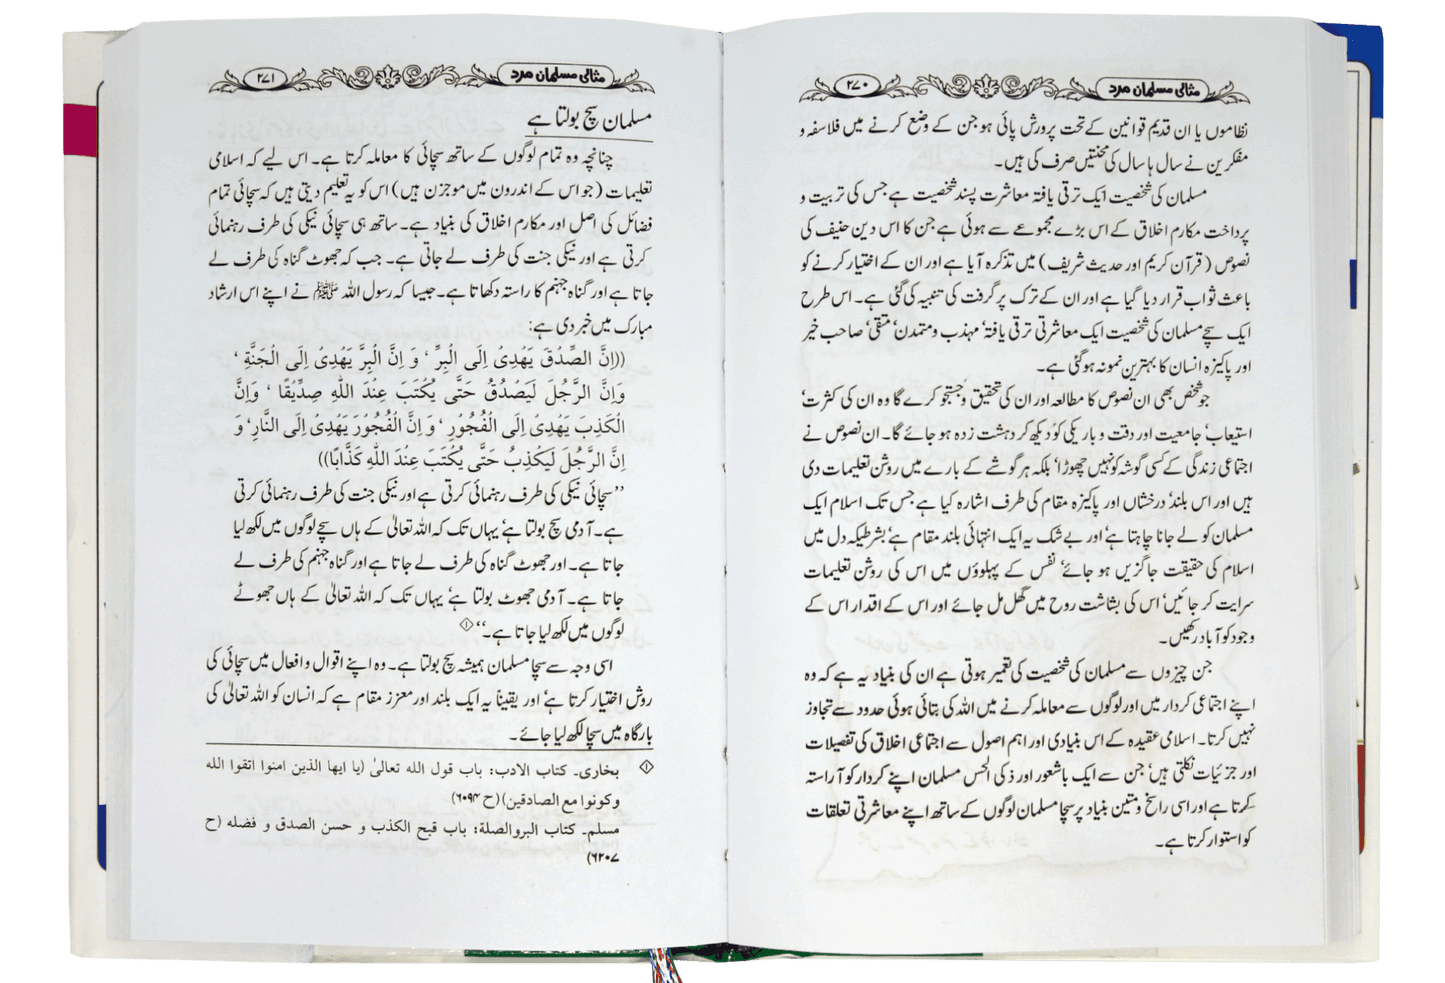 مثالی مسلمان مرد ۲۷۰
نظاموں یا ان قدیم قوانین کے تحت پرورش پائی ہو جن کے وضع کرنے میں فلاسفہ و
مفکرین نے سال ہا سال کی محنتیں صرف کی ہیں۔
مسلمان کی شخصیت ایک ترقی یافتہ معاشرت پسند شخصیت ہے جس کی تربیت و
پرداخت مکارم اخلاق کے اس بڑے مجموعے سے ہوئی ہے جن کا اس دین حنیف کی
نصوص (قرآن کریم اور حدیث شریف) میں تذکرہ آیا ہے اور ان کے اختیار کرنے کو
باعث ثواب قرار دیا گیا ہے اور ان کے ترک پر گرفت کی تنبیہ کی گئی ہے۔ اس طرح
ایک سچے مسلمان کی شخصیت ایک معاشرتی ترقی یافتہ‘ مہذب و متمدن‘ متقی‘ صاحب خیر
اور پاکیزہ انسان کا بہترین نمونہ ہو گئی ہے۔
جو شخص بھی ان نصوص کا مطالعہ اور ان کی تحقیق و جستجو کرے گا وہ ان کی کثرت‘
استیعاب‘ جامعیت اور دقت و باریکی کو دیکھ کر دہشت زدہ ہو جائے گا۔ ان نصوص نے
اجتماعی زندگی کے کسی گوشہ کو نہیں چھوڑا‘ بلکہ ہر گوشے کے بارے میں روشن تعلیمات دی
ہیں اور اس بلند‘ درخشاں اور پاکیزہ مقام کی طرف اشارہ کیا ہے جس تک اسلام ایک
مسلمان کو لے جانا چاہتا ہے‘ اور بے شک یہ ایک انتہائی بلند مقام ہے‘ بشرطیکہ دل میں
اسلام کی حقیقت جاگزیں ہو جائے‘ نفس کے پہلوؤں میں اس کی روشن تعلیمات
سرایت کر جائیں‘ اس کی بشاشت روح میں گھل مل جائے اور اس کے اقدار اس کے
وجود کو آباد رکھیں۔
جن چیزوں سے مسلمان کی شخصیت کی تعمیر ہوتی ہے ان کی بنیاد یہ ہے کہ وہ
اپنے اجتماعی کردار میں اور لوگوں سے معاملہ کرنے میں اللہ کی بتائی ہوئی حدود سے تجاوز
نہیں کرتا۔ اسلامی عقیدہ کے اس بنیادی اور اہم اصول سے اجتماعی اخلاق کی تفصیلات
اور جزئیات نکلتی ہیں‘ جن سے ایک باشعور اور ذکی الحس مسلمان اپنے کردار کو آراستہ
کرتا ہے اور اسی راسخ و متین بنیاد پر سچا مسلمان لوگوں کے ساتھ اپنے معاشرتی تعلقات
کو استوار کرتا ہے۔
مثالی مسلمان مرد ۲۷۱
مسلمان سچ بولتا ہے
چنانچہ وہ تمام لوگوں کے ساتھ سچائی کا معاملہ کرتا ہے۔ اس لیے کہ اسلامی
تعلیمات (جو اس کے اندرون میں موجزن ہیں) اس کو یہ تعلیم دیتی ہیں کہ سچائی تمام
فضائل کی اصل اور مکارم اخلاق کی بنیاد ہے۔ ساتھ ہی سچائی نیکی کی طرف رہنمائی
کرتی ہے اور نیکی جنت کی طرف لے جاتی ہے۔ جب کہ جھوٹ گناہ کی طرف لے
جاتا ہے اور گناہ جہنم کا راستہ دکھاتا ہے۔ جیسا کہ رسول اللہ ﷺ نے اپنے اس ارشاد
مبارک میں خبر دی ہے:
((اِنَّ الصِّدْقَ يَهْدِىْ اِلَى الْبِرِّ ‘ وَ اِنَّ الْبِرَّ يَهْدِىْ اِلَى الْجَنَّةِ ‘
وَاِنَّ الرَّجُلَ لَيَصْدُقُ حَتَّى يُكْتَبَ عِنْدَ اللّٰهِ صِدِّيْقًا ‘ وَاِنَّ
الْكَذِبَ يَهْدِىْ اِلَى الْفُجُوْرِ ‘ وَ اِنَّ الْفُجُوْرَ يَهْدِىْ اِلَى النَّارِ‘ وَ
اِنَّ الرَّجُلَ لَيَكْذِبُ حَتَّى يُكْتَبَ عِنْدَ اللّٰهِ كَذَّابًا))
’’سچائی نیکی کی طرف رہنمائی کرتی ہے اور نیکی جنت کی طرف رہنمائی کرتی
ہے۔ آدمی سچ بولتا ہے‘ یہاں تک کہ اللہ تعالیٰ کے ہاں سچے لوگوں میں لکھ لیا
جاتا ہے۔ اور جھوٹ گناہ کی طرف لے جاتا ہے اور گناہ جہنم کی طرف لے
جاتا ہے۔ آدمی جھوٹ بولتا ہے‘ یہاں تک کہ اللہ تعالیٰ کے ہاں جھوٹے
لوگوں میں لکھ لیا جاتا ہے۔‘‘ ①
اسی وجہ سے سچا مسلمان ہمیشہ سچ بولتا ہے۔ وہ اپنے اقوال و افعال میں سچائی کی
روش اختیار کرتا ہے‘ اور یقیناً یہ ایک بلند اور معزز مقام ہے کہ انسان کو اللہ تعالیٰ کی
بارگاہ میں سچا لکھ لیا جائے۔
① بخاری۔ کتاب الادب: باب قول الله تعالیٰ (يا ايها الذين امنوا اتقوا الله
وكونوا مع الصادقين) (ح ۶۰۹۴)
مسلم۔ كتاب البروالصلة: باب قبح الكذب و حسن الصدق و فضله (ح
۶۲۰۷)